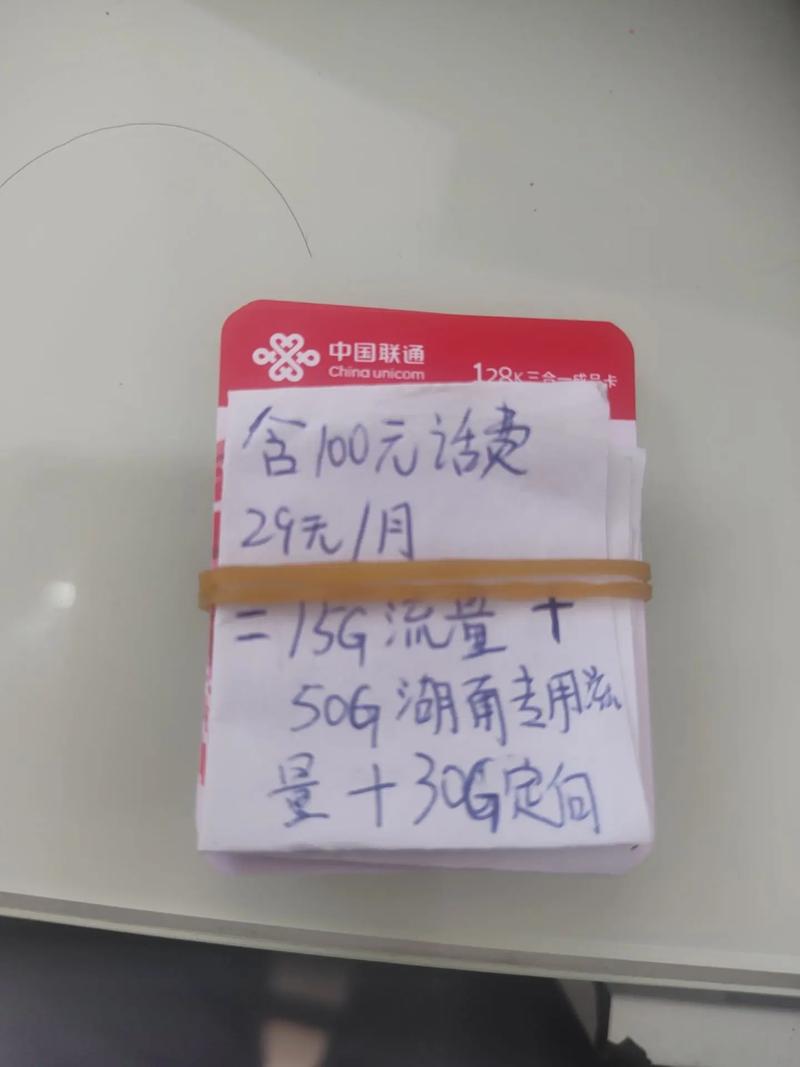 中国联通
China unicom
128K三合一成品卡
含100元话费
29元/月
=15G流量+
50G湖南专用流
量+30G定向